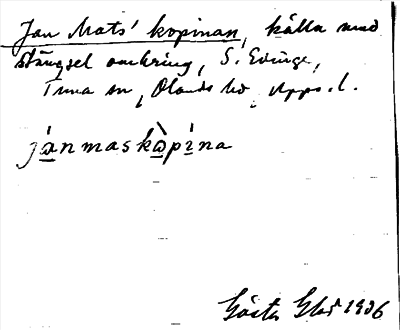 Jan Mats' kopinan, källa med
stängsel omkring, S. Edinge,
Tuna sn, Olands hd, Upps. l.
jánmaskò̱pi̱na
Gösta Glad 1936